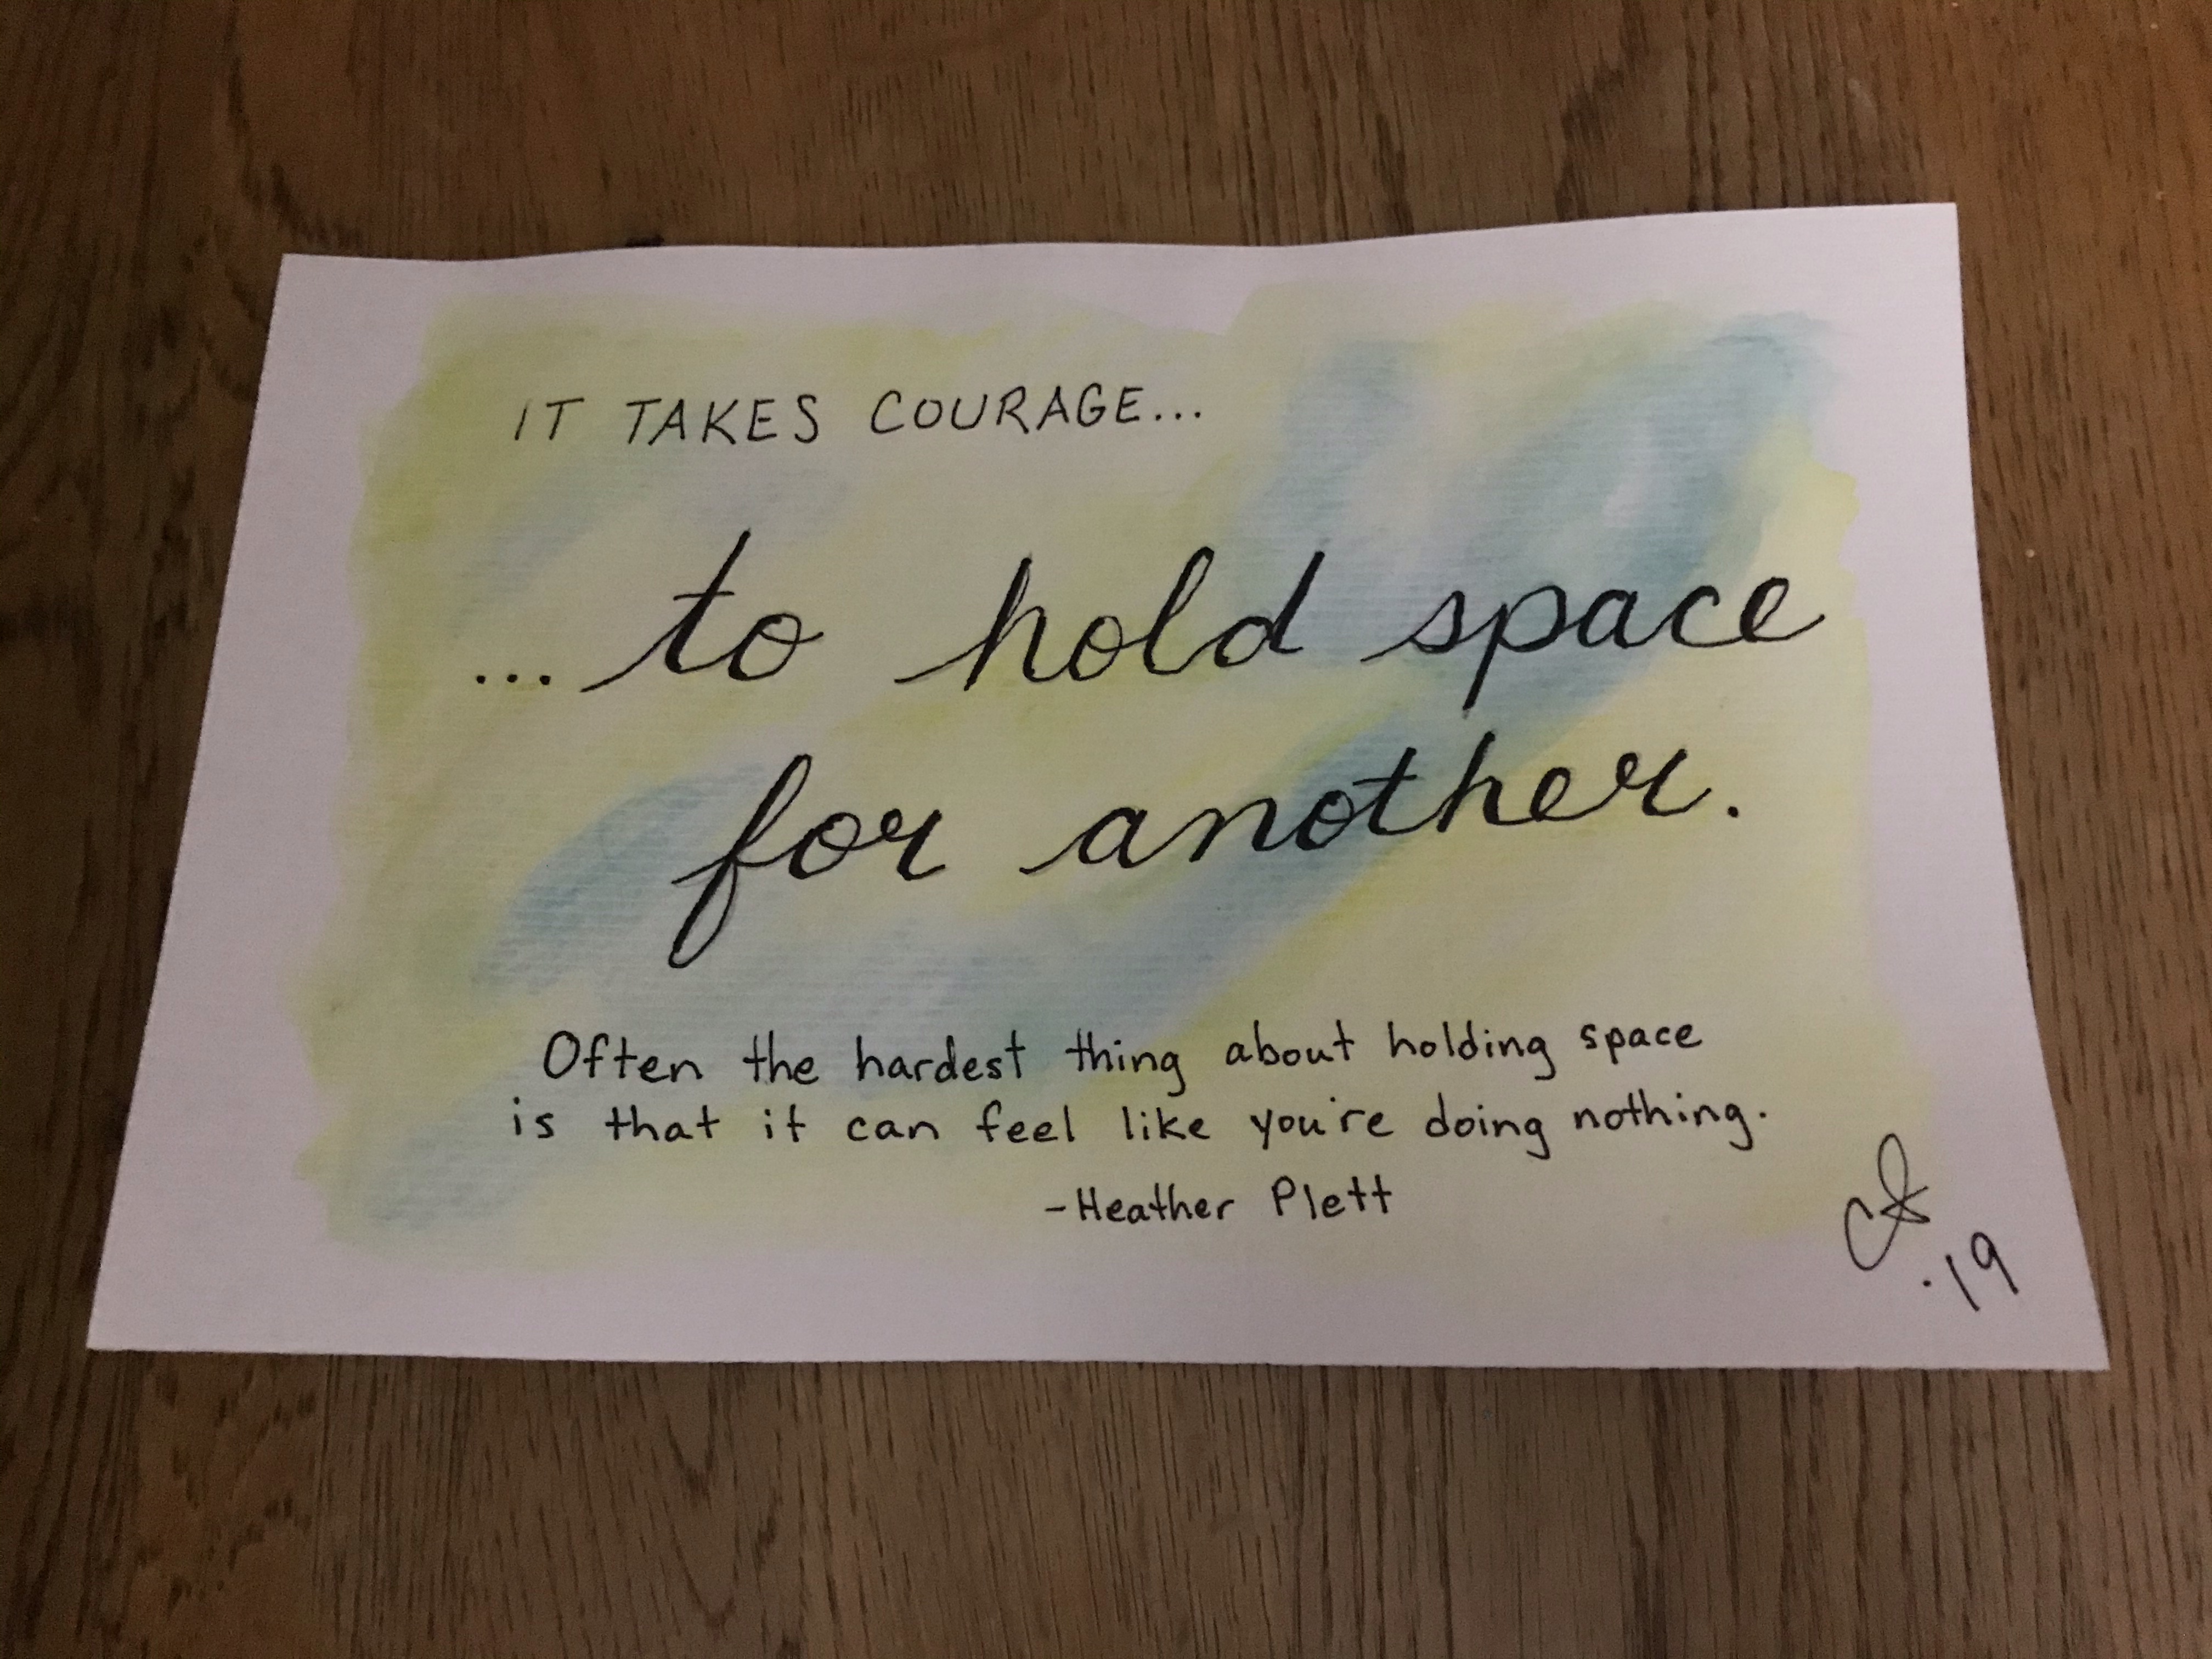 IT TAKES COURAGE...
...to hold space
for another.
Often the hardest thing about holding space
is that it can feel like you're doing nothing.
-Heather Plett
.19